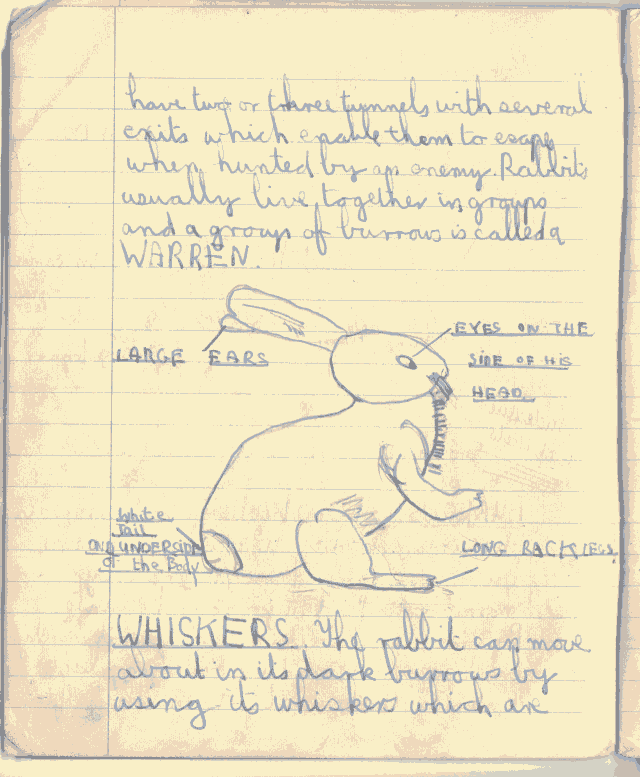 have two or three tunnels with several
exits which enable them to escape
when hunted by an enemy. Rabbits
usually live together in groups
and a group of burrows is called a
WARREN.
LARGE EARS
EYES ON THE
SIDE OF HIS
HEAD.
White
Tail
ON UNDERSIDE
of the Body
LONG BACK LEGS.
WHISKERS. The rabbit can move
about in its dark burrows by
using its whiskers which are